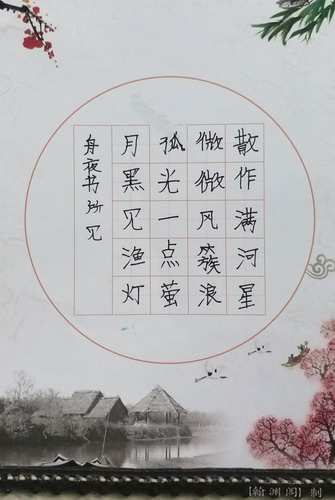 舟夜书所见
月黑见渔灯
孤光一点萤
微微风簇浪
散作满河星
【翰渊阁】制